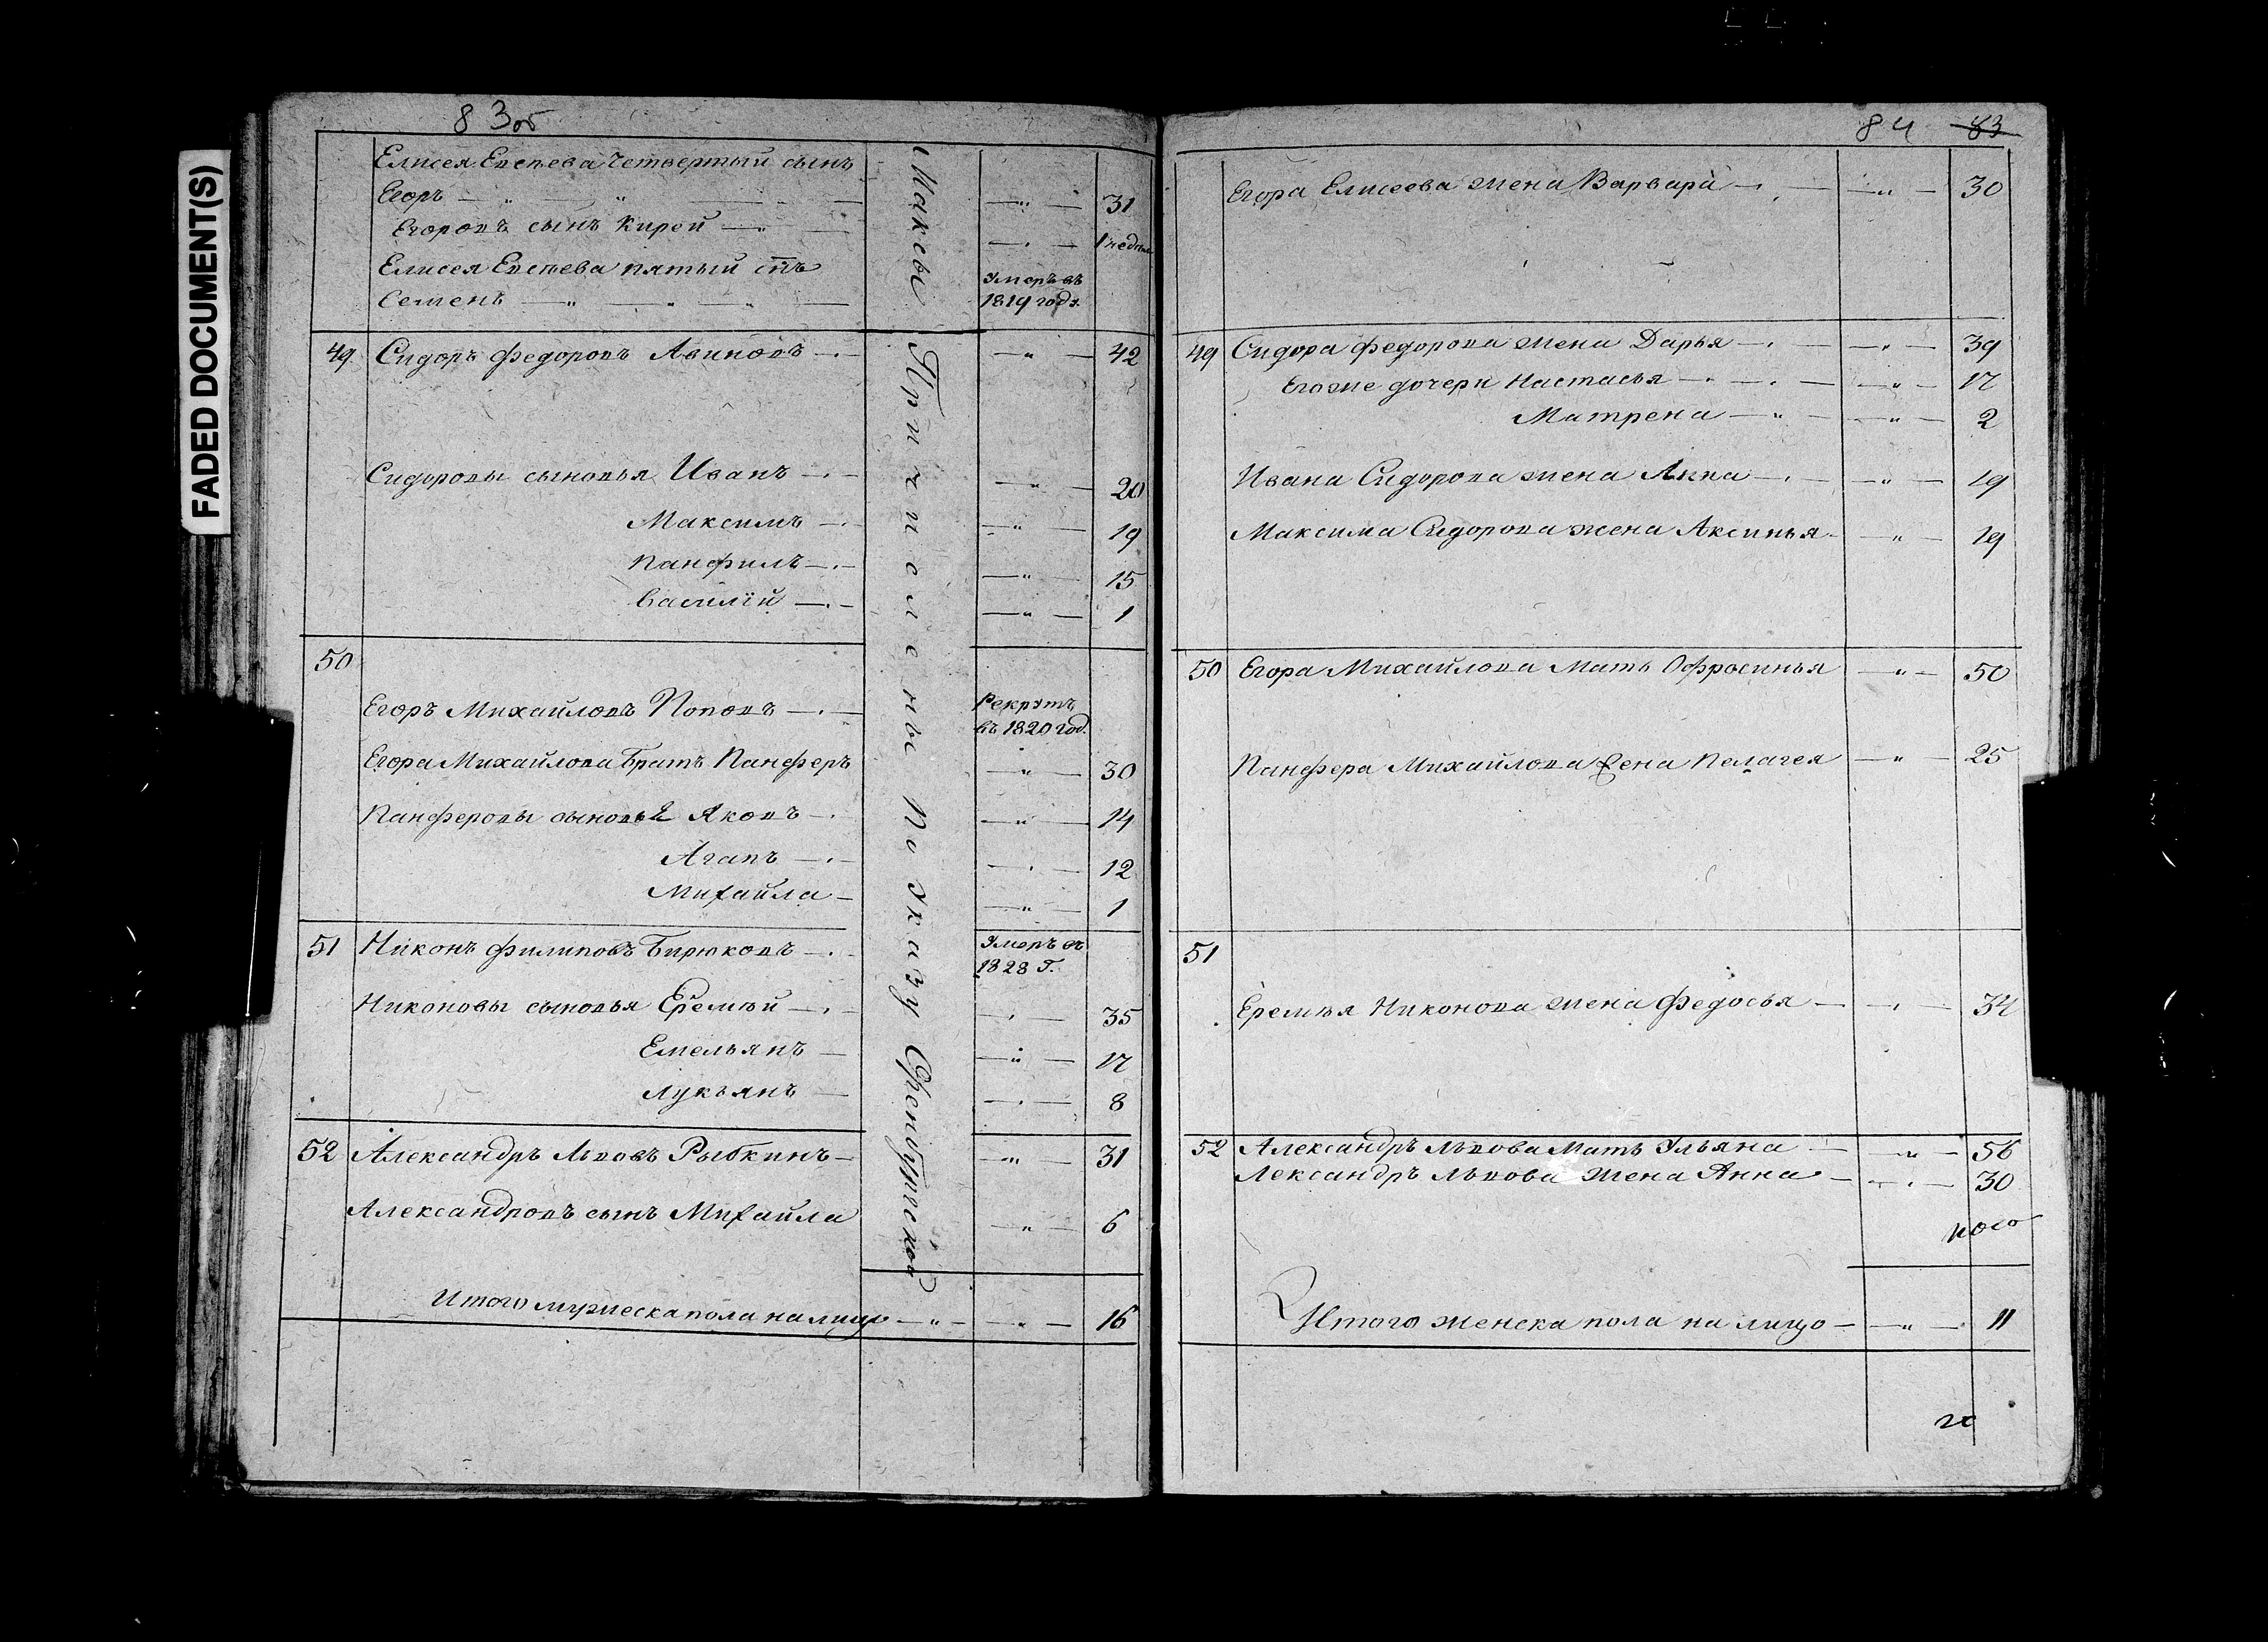 FADED DOCUMENT(S)
83об
Елисея Евсѣева четвертый сынъ
Егоръ — " — " — 31
Егоровъ сынъ Кирей — " — 1 недели
Елисея Евсѣева пятый снъ
Семенъ — " — " — Умеръ въ 1819 годѣ
49 Сидоръ Федоровъ Авиновъ — " — 42
Сидоровы сыновья Иванъ — " — 20
Максимъ — " — 19
Панфилъ — " — 15
Василій — " — 1
50
Егоръ Михайловъ Поповъ — Рекрутъ въ 1820 год.
Егора Михайлова Братъ Панферъ — " — 30
Панферовы сыновья Яковъ — " — 14
Агапъ — " — 12
Михайла — " — 1
51 Никонъ Филиповъ Бирюковъ — Умеръ въ 1828 Г.
Никоновы сыновья Еремѣй — " — 35
Емельянъ — " — 17
Лукьянъ — " — 8
52 Александръ Львовъ Рыбкинъ — " — 31
Александровъ сынъ Михайла — " — 6
Итого мужеска пола на лицо — " — " — 16
Причислены По Указу Оренбургской
84 83
Егора Елисеева жена Варвара — " — 30
49 Сидора Федорова жена Дарья — " — 39
Егоже дочери Настасья — " — 17
Матрена — " — 2
Ивана Сидорова жена Анна — " — 19
Максима Сидорова жена Аксинья — " — 19
50 Егора Михайлова Мать Офросинья — " — 50
Панфера Михайлова жена Пелагея — " — 25
51
Еремѣя Никонова жена Федосья — " — 34
52 Александръ Львова Мать Ульяна — " — 56
Лександръ Львова жена Анна — " — 30
Итого женска пола на лицо — " — 11